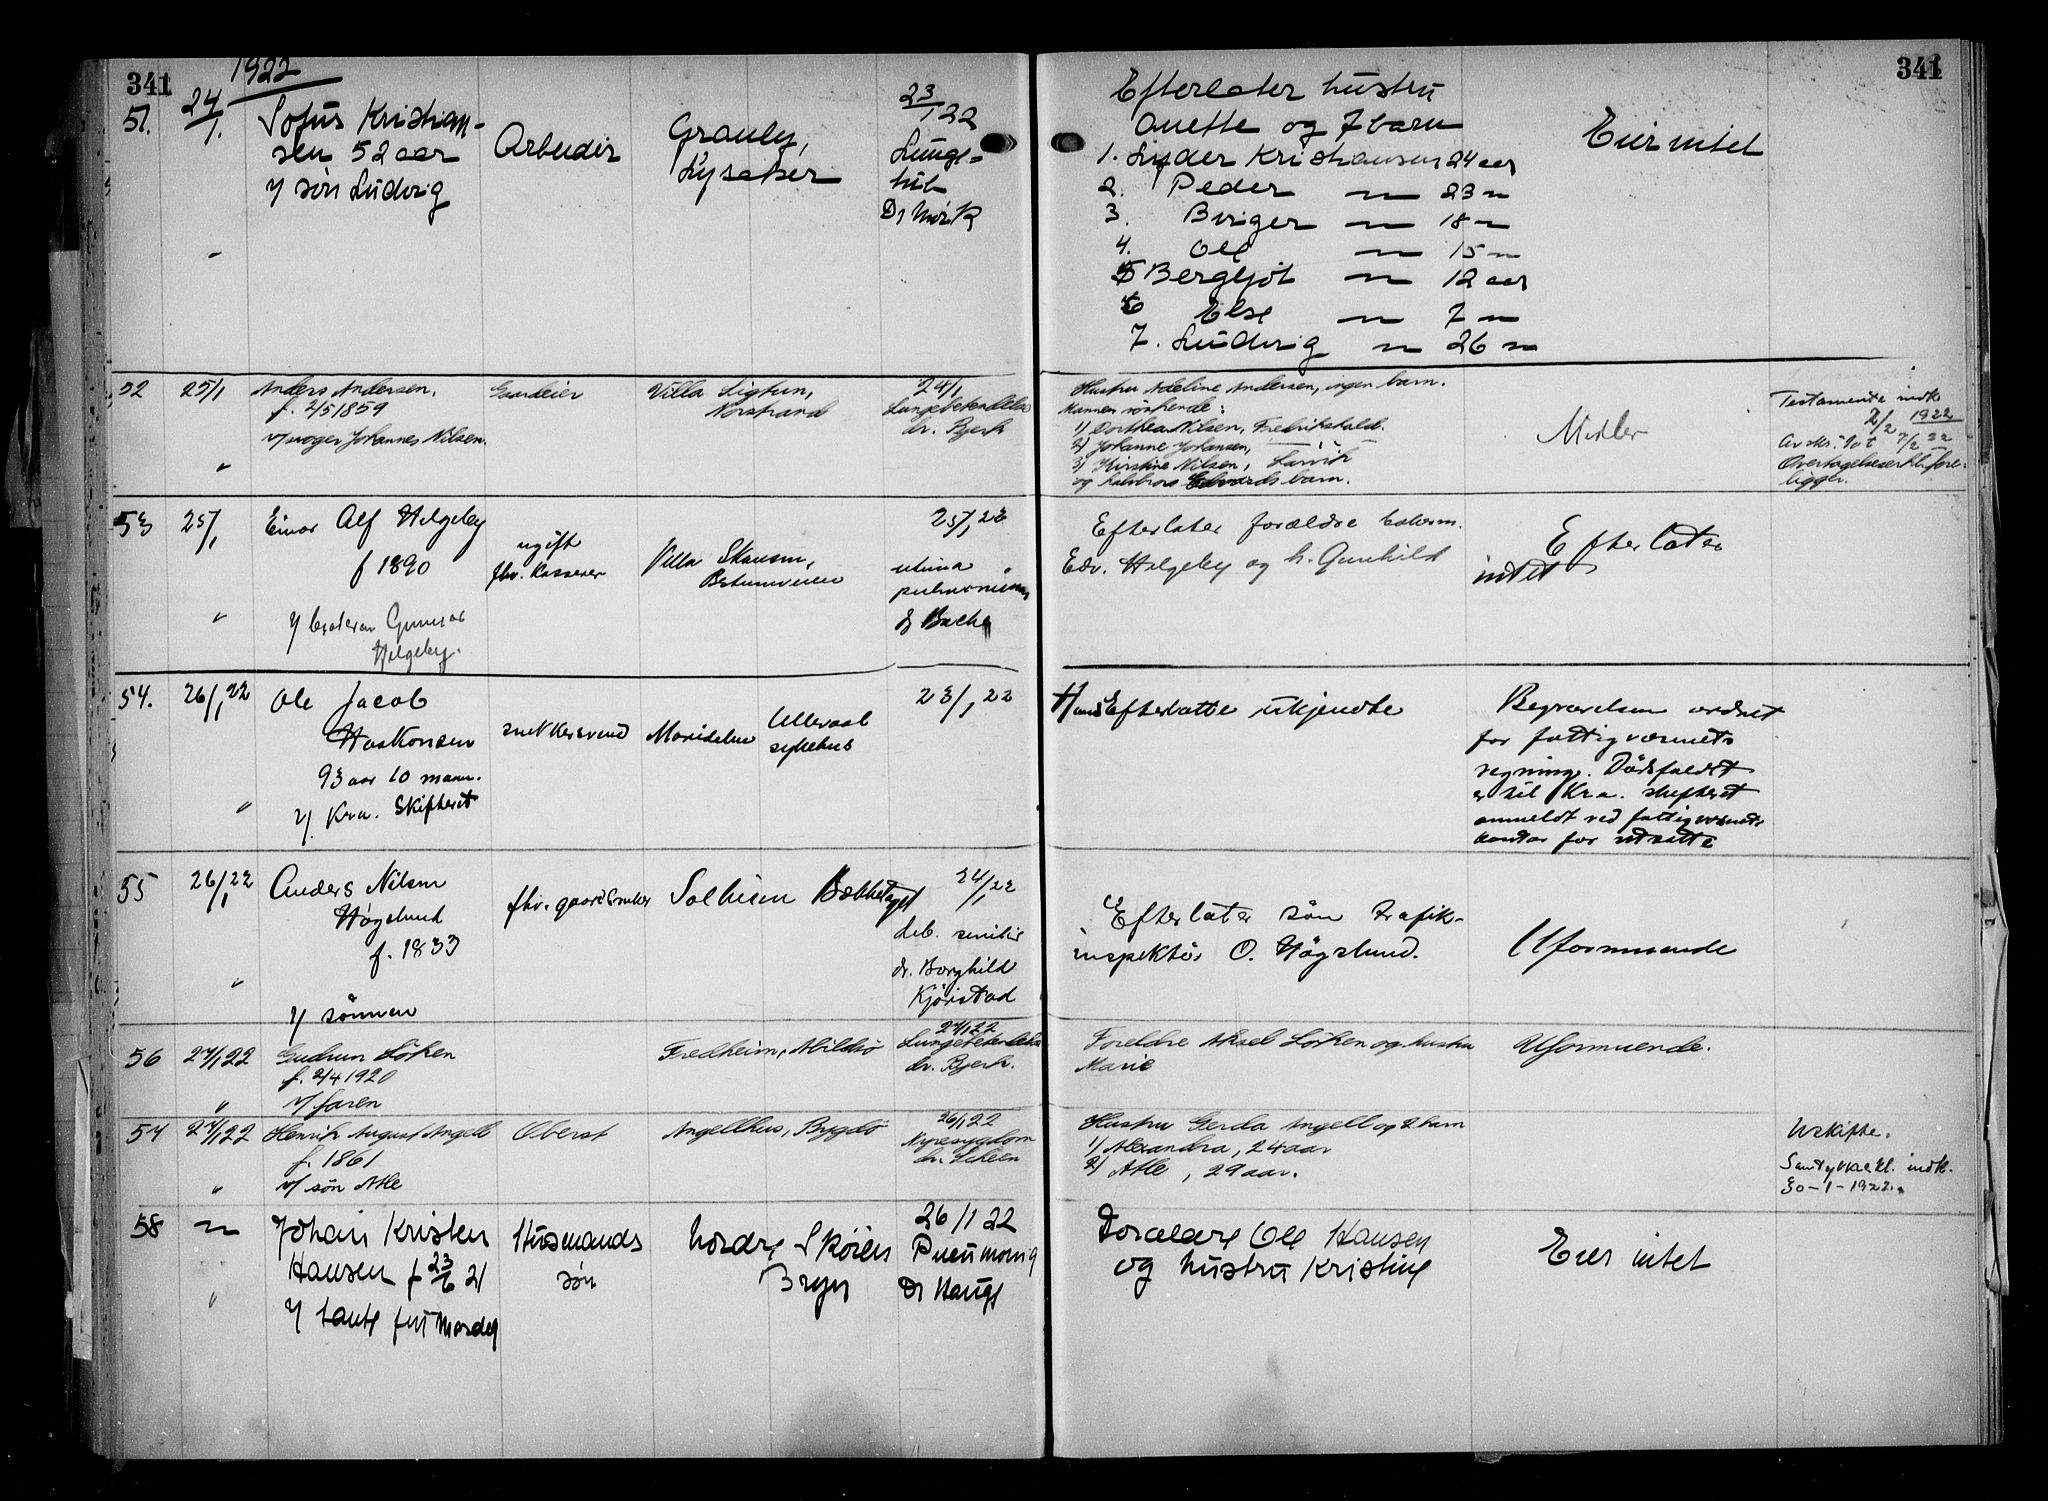 341
341
1922
51.
24/1.
Sofus Kristian-
sen 52 aar
v/ søn Ludvig
"
Arbeider
Granly,
Lysaker
23/1 22
Lunge-
Dr Mørk
Efterlater hustru
Anette og 7 barn
1. Lyder Kristiansen 24 aar
2. Peder " 23 "
3. Birger " 18 "
4. Ole " 15 "
5 Bergljot " 12 aar
6 Else " 7 "
7. Ludvig " 26 "
Eier intet
52
25/1
Anders Andersen,
f. 2/5 1859
v/ svoger Johannes Nilsen.
"
Gaardeier
Villa Sigtun,
Norstrand
24/1
Lungebetendelse
dr. Bjerk
Hustru Adeline Andersen, ingen barn.
Mannens søskende:
1) Dorthea Nilsen, Fredrikshald.
2) Johanne Johansen, "
3) Kirstine Nilsen, Larvik
og halvbror Edvards barn.
Midler
Testamente indk
2/2 1922
7/2 22
Overtagelseserkl. fore-
ligger.
53
25/1
Einar Alf Helgeby
f 1890
"
v/ broderen Gunnar
Helgeby.
ugift
fhv. kasserer
Villa Skansen,
Bestumveien
25/1 22
pulmonum
dr Bache
Efterlater forældre
Edv. Helgeby og h. Gunhild
Efterlater
intet
54.
26/1 22
Ole Jacob
Haakonsen
93 aar 10 maan.
v/. Kra. Skifteret
"
snekkersvend
Maridalen
Ullevaal
sykehus
23/1 22
Hans Efterlatte ukjendte
Begravelsen ordnet
for fattigvæsenets
regning. Dødsfaldet
er til Kra. skifteret
anmeldt ved fattigvæsenets
kontor for utsatte
55
26/1 22
Anders Nilsen
Høgslund
f. 1833
"
v/ sønnen
fhv. gaardbruker
Solheim Bækkelaget
24/1 22
deb. senilis
dr. Borghild
Kjørstad
Efterlater søn trafik-
inspektør O. Høgslund.
Uformuende
56
27/1 22
Gudrun Løken
f. 2/4 1920
" v/ faren
Fredheim, Malmø
27/1 22
Lungebetendelse
dr. Bjerk.
Foreldre Aksel Løken og hustru
Marie
Uformuende.
57
27/1 22
Henrik August Angell
f. 1861
" v/ søn Atle
Oberst
Angellhus, Bygdø
26/1 22
Nyresygdom
dr. Scheen
Hustru Gerda Angell og 2 barn
1/ Alexandra, 24 aar
2/ Atle, 29 aar.
Uskifte.
Samtykkeerkl. indk.
30-1-1922.
58
"
Johan Kristen
Hansen f 23/6 21
" v/ tante fru
Husmands
søn
Nordre Skøien
Bryn
26/1 22
Pneumoni
Dr Hauge
Forældre Ole Hansen
og hustru Kristine
Eier intet